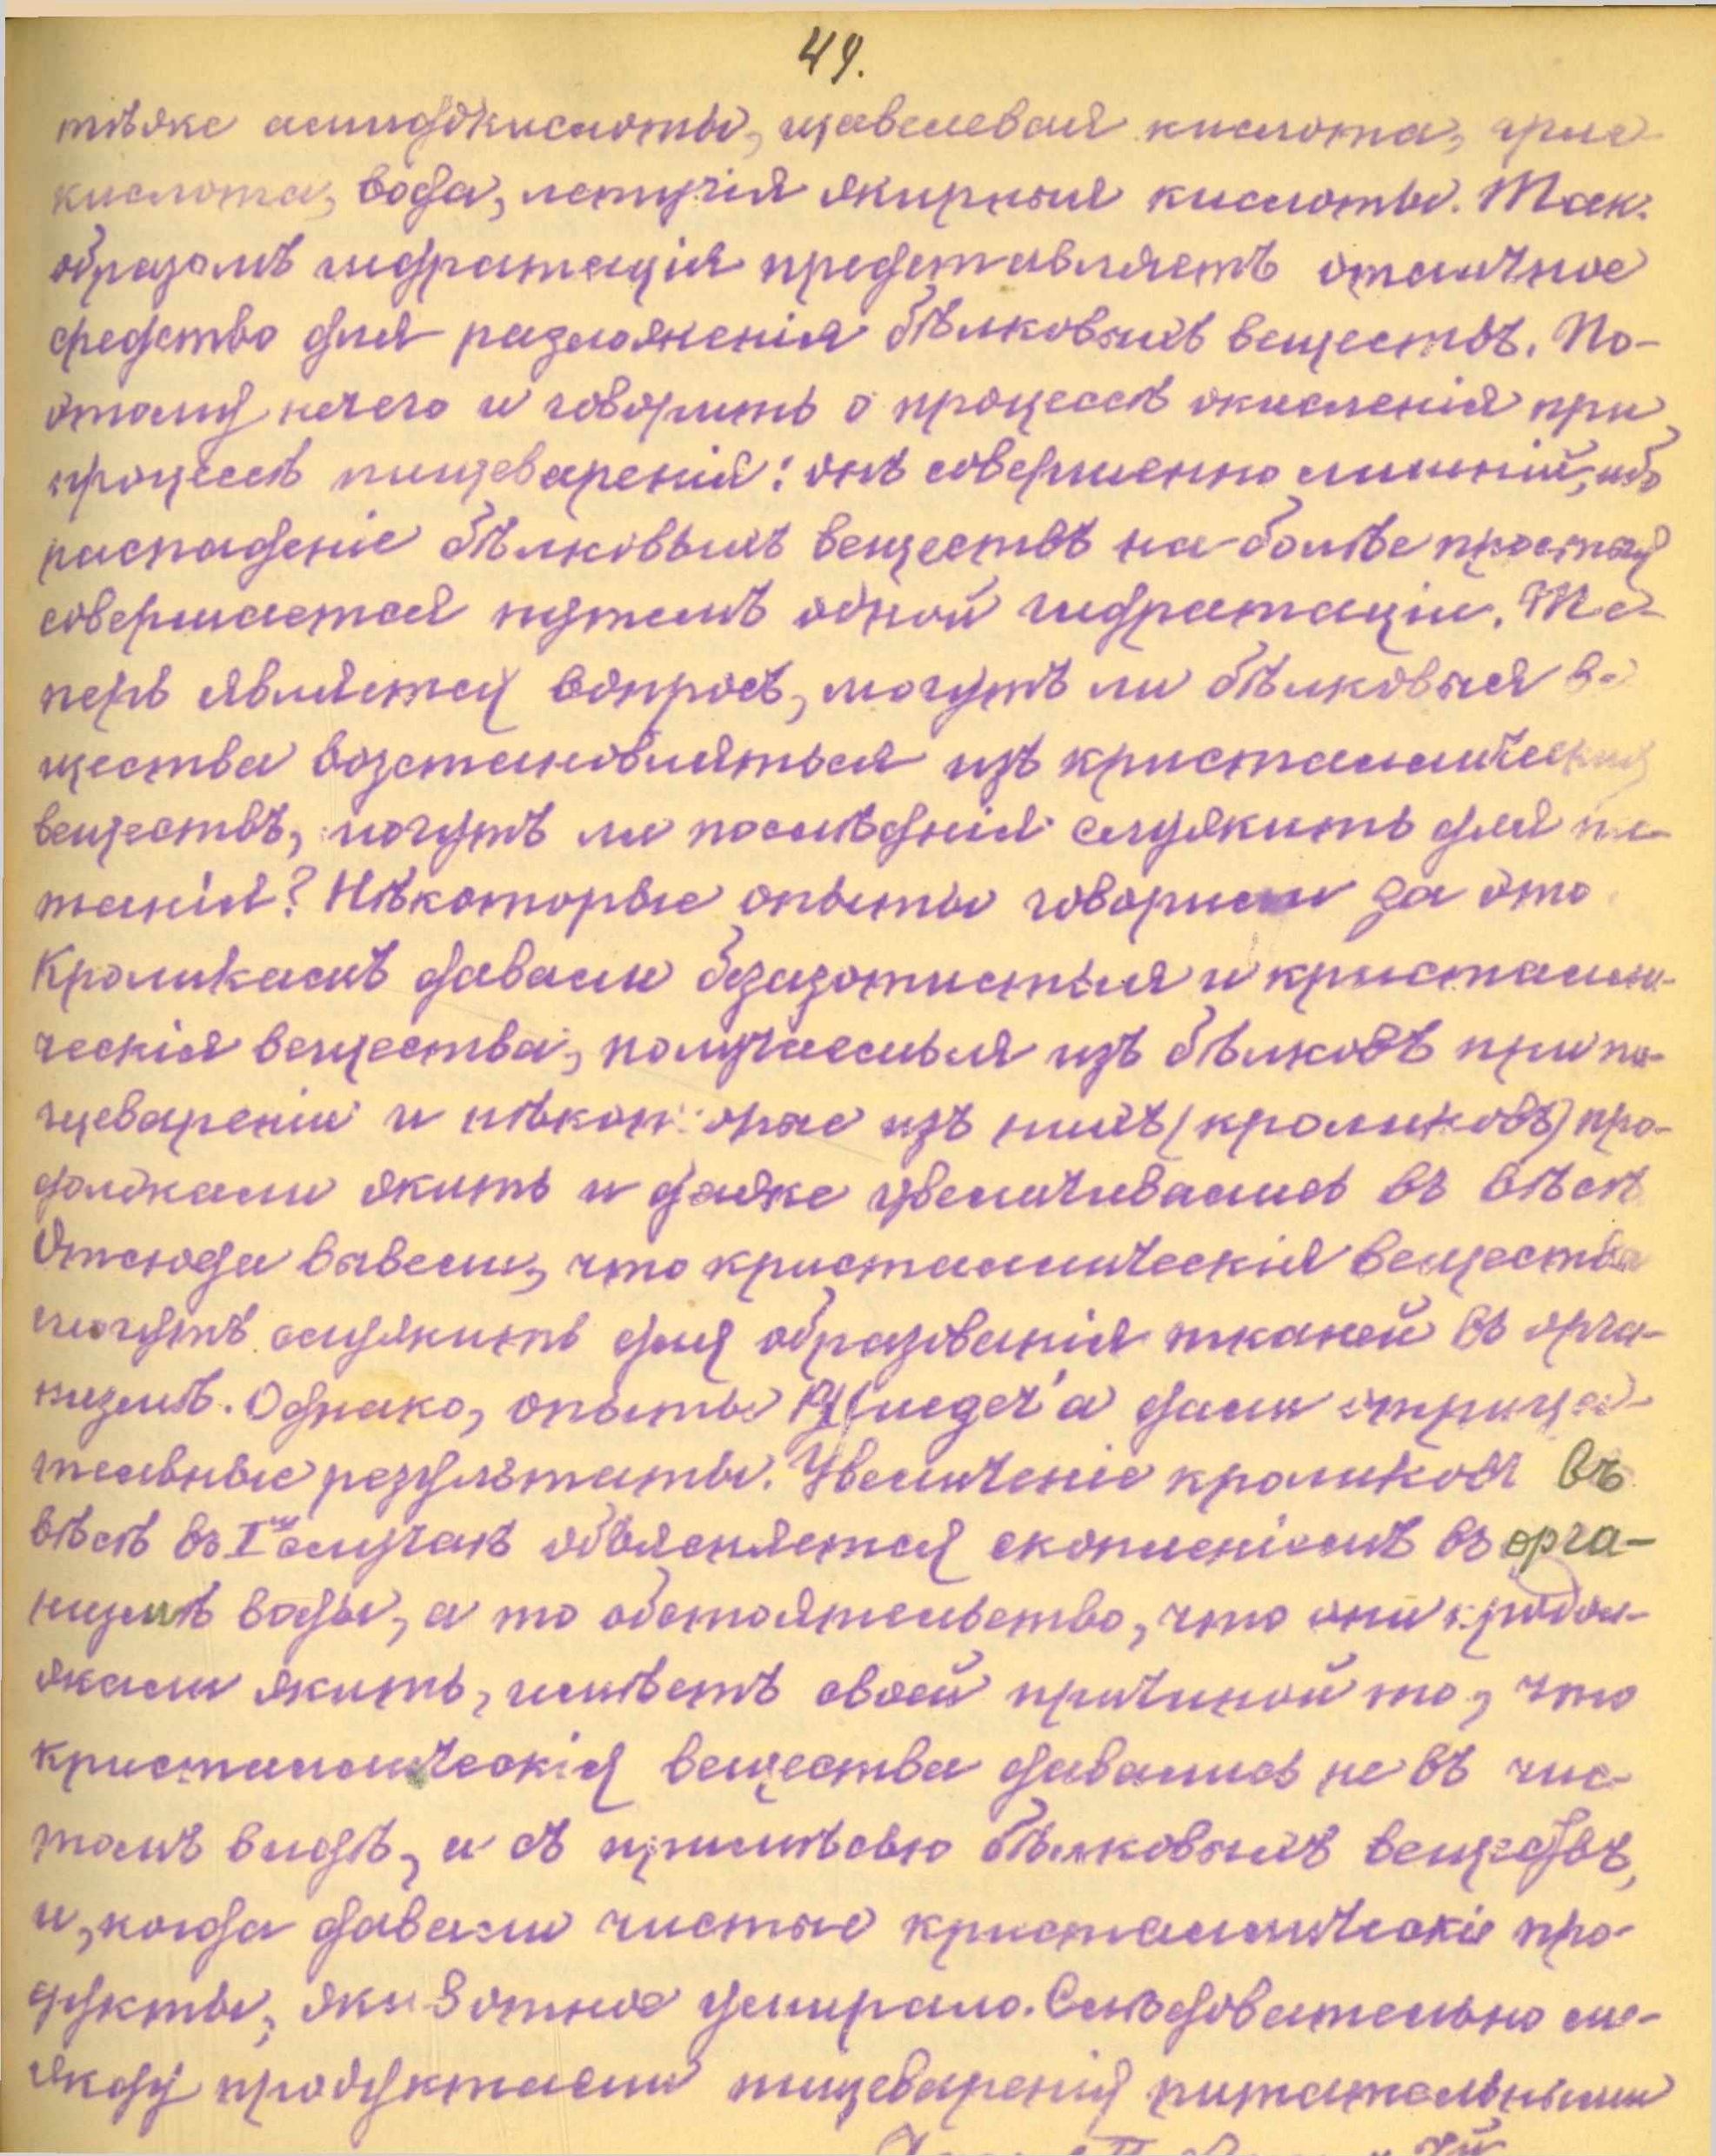 49.
тѣже амидокислоты, щавелевая кислота,
кислота, вода, летучія жирныя кислоты. Так.
образомъ гидратація представляетъ отличное
средство для разложенія бѣлковыхъ веществъ. По-
этому нечего и говорить о процессѣ окисленія при
процессѣ пищеваренія: онъ совершенно лишній, ибо
распаденіе бѣлковыхъ веществъ на болѣе простыя
совершается путемъ одной гидратаціи. Те-
перь является вопросъ, могутъ ли бѣлковыя ве
щества возстановляться изъ кристаллическихъ
веществъ, могутъ ли послѣднія служить для пи-
танія? Нѣкоторые опыты говорили за это.
Кроликамъ давали безазотистыя и кристалли-
ческія вещества, получаемыя изъ бѣлковъ при пи-
щевареніи и нѣкоторые изъ нихъ (кроликовъ) про-
должали жить и даже увеличивались въ вѣсѣ
Отсюда вывели, что кристаллическія вещества
могутъ служить для образованія тканей въ орга-
низмѣ. Однако, опыты Pflueger'а дали отрица-
тельные результаты. Увеличеніе кроликовъ въ
вѣсѣ въ I-мъ случаѣ объясняется скопленіемъ въ орга-
низмѣ воды, а то обстоятельство, что они продол-
жали жить, имѣетъ своей причиной то, что
кристаллическія вещества давались не въ чис-
томъ видѣ, а съ примѣсью бѣлковыхъ веществъ,
и, когда давали чистые кристаллическіе про-
дукты, животное умирало. Слѣдовательно ме-
жду продуктами пищеваренія питательными